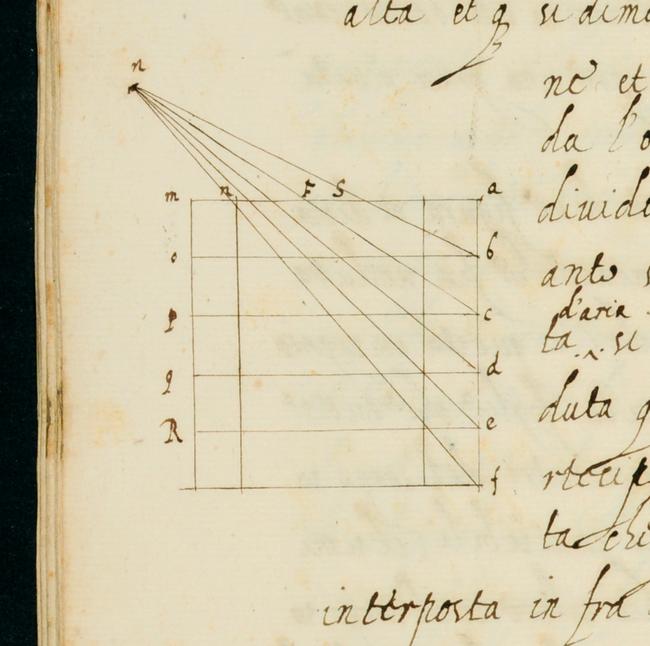 alta et q si dimo
n
ne et
da l'o
m n F S a
divide
o b
ante
d'aria
p c
ta si
q d
duta q
R e
f
ta chi
interposta in fra